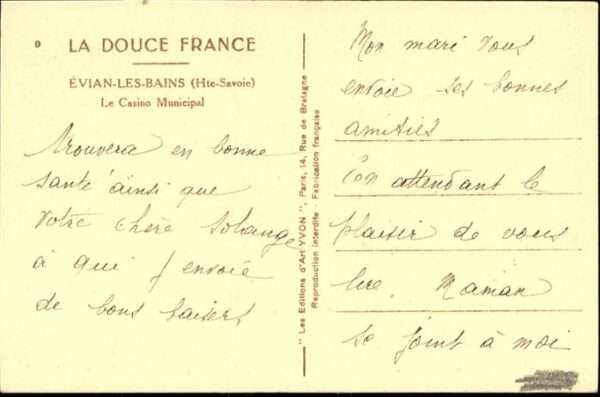 9 LA DOUCE FRANCE
ÉVIAN-LES-BAINS (Hte-Savoie)
Le Casino Municipal
trouvera en bonne
santé ainsi que
votre chère Solange
à qui j envoie
de bons baisers
" Les Editions d'Art YVON ", Paris, 14, Rue de Bretagne
Reproduction interdite - Fabrication française
Mon mari vous
envoie ses bonnes
amitiés
En attendant le
plaisir de vous
lire, Maman
se joint à moi